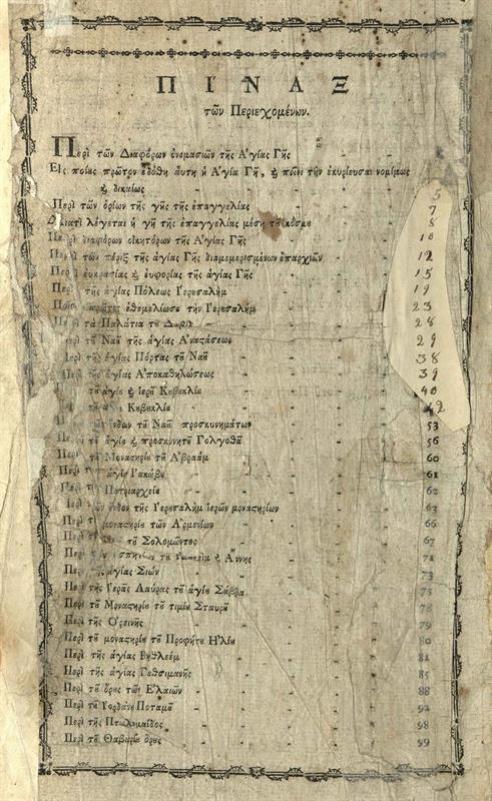 ΠΙΝΑΞ
τῶν Περιεχομένων.
Περὶ τῶν Διαφόρων ὀνομασιῶν τῆς Ἁγίας Γῆς
Εἰς ποίας πρῶτον ἐδόθη αὕτη ἡ Ἁγία Γῆ, ϗ ποῖοι τὴν ἐκυρίευσαι νομίμως
ϗ δικαίως 5
Περὶ τῶν ὁρίων τῆς γῆς τῆς ἐπαγγελίας 7
Διατὶ λέγεται ἡ γῆ τῆς ἐπαγγελίας μέση τȣ͂ κόσμȣ 8
Περὶ διαφόρων οἰκητόρων τῆς Ἁγίας Γῆς 10
Περὶ τῶν πέριξ τῆς ἁγίας Γῆς διαμεμερισμένων ἐπαρχιῶν 12
Περὶ εὐκρασίας ϗ εὐφορίας τῆς ἁγίας Γῆς 15
Περὶ τῆς ἁγίας Πόλεως Ἱερȣσαλὴμ 19
ἐθεμελίωσε τὴν Ἱερȣσαλὴμ 23
Περὶ τὰ Παλάτια τȣ͂ Δαβὶδ 28
Περὶ τȣ͂ Ναȣ͂ τῆς ἁγίας Ἀναςάσεως 29
Περὶ τῆς ἁγίας Πόρτας τȣ͂ Ναȣ͂ 38
Περὶ τῆς ἁγίας Ἀποκαθηλώσεως 39
τȣ͂ ἁγίȣ ϗ ἱερȣ͂ Κȣβȣκλίȣ 40
Κȣβȣκλίȣ 42
τȣ͂ Ναȣ͂ προσκυνημάτων 53
Περὶ τȣ͂ ἁγίȣ ϗ προσκυνητȣ͂ Γολγοθᾶ 56
Περὶ τȣ͂ Μοναςηρίȣ τȣ͂ Ἀβραάμ 60
Περὶ τȣ͂ ἁγίȣ Ἰακώβȣ 61
Περὶ τȣ͂ Πατριαρχείȣ 62
Περὶ τῶν ἔνδον τῆς Ἱερȣσαλὴμ ἱερῶν μοναςηρίων 63
Περὶ τȣ͂ μοναςηρίȣ τῶν Ἀρμενίων 66
τȣ͂ Σολομῶντος 67
Περὶ τȣ͂ Ἰωακεὶμ ϗ Ἄννης 71
Περὶ τῆς ἁγίας Σιών 73
Περὶ τῆς Ἱερᾶς Λαύρας τȣ͂ ἁγίȣ Σάββα 75
Περὶ τȣ͂ Μοναςηρίȣ τȣ͂ τιμίȣ Σταυρȣ͂ 78
Περὶ τῆς Ὀρεινῆς 79
Περὶ τȣ͂ μοναςηρίȣ τȣ͂ Προφήτȣ Ἠλίȣ 80
Περὶ τῆς ἁγίας Βηθλεέμ 81
Περὶ τῆς ἁγίας Γεθσιμανῆς 85
Περὶ τȣ͂ ὄρȣς τῶν Ἐλαιῶν 88
Περὶ τȣ͂ Ἰορδάνȣ Ποταμȣ͂ 92
Περὶ τῆς Πτωλιμαΐδος 98
Περὶ τȣ͂ Θαβωρίȣ ὄρȣς 99